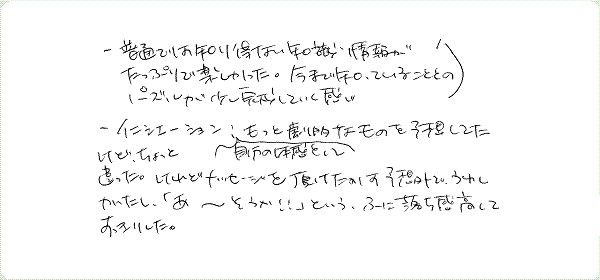 - 普通では知り得ない知識、情報が
たっぷりで楽しかった。今まで知っていることとの
パズルが少し完成していく感じ
- イニシエーション；もっと劇的なものを予想してた
けど、ちょっと 自分の体感として
違った。けれどメッセージを頂けたのは予想外で、うれし
かったし、「あ〜そうか!!」という、ふに落ち感高して
おりました。